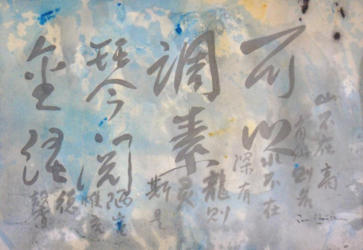 可以
调素
琴阅
金经
山不在高
有仙则名
水不在
深有
龍则
灵
斯是
陋室
惟吾
德
馨